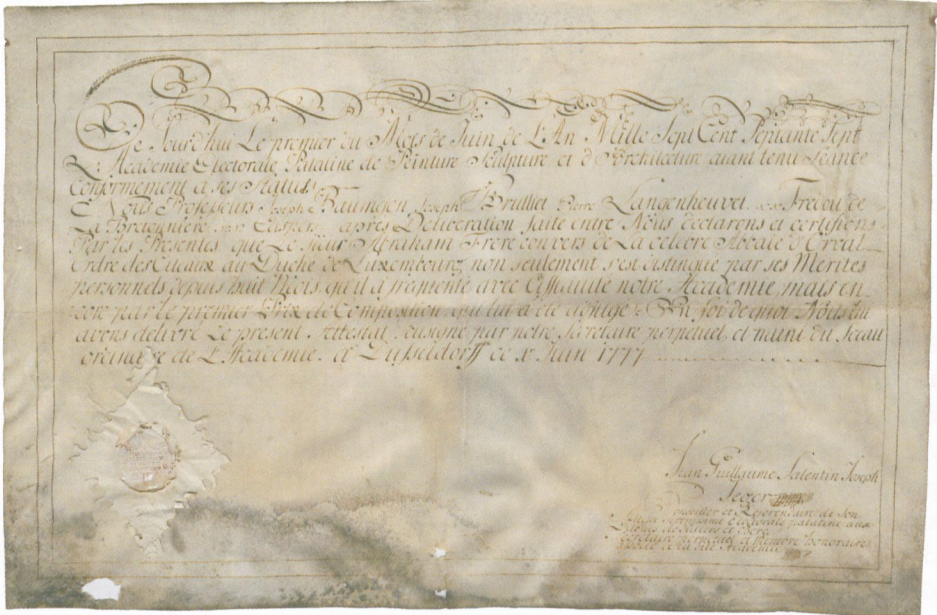 Ce Jourd'hui Le premier du Mois de Juin de L'An Mille Sept Cent Septante Sept
L'Academie Electorale Palatine de Peinture Sculpture et d'Architecture aiant tenu seance
Conformement a ses Statuts
Nous Professeurs Joseph Baumgen Joseph Brulliet Pierre Langenheuvel Fredou de
La Bretonniere après Deliberation faite entre Nous declarons et certifions
Par les Presentes que Le sieur Abraham Frere convers de La celebre Abbaie d'Orval
Ordre des Citeaux au Duché de Luxembourg non seulement s'est distingué par ses Merites
personnels depuis huit Mois qu'il a frequenté avec Assiduité notre Academie, mais en
core par le premier Prix de Composition qui lui a été adjugé En foi de quoi Nous lui
avons delivré Le present Attestat, consigné par notre Secretaire perpetuel, et muni du Sceau
ordinaire de L'Academie. a Dusseldorff ce x Juin 1777
Jean Guillaume Valentin Joseph
Jeger
Conseiller et Referendaire de Son
Altesse Serenissime Electorale palatine aux
Secretaire perpetuel et Membre honoraire
de la dite Academie